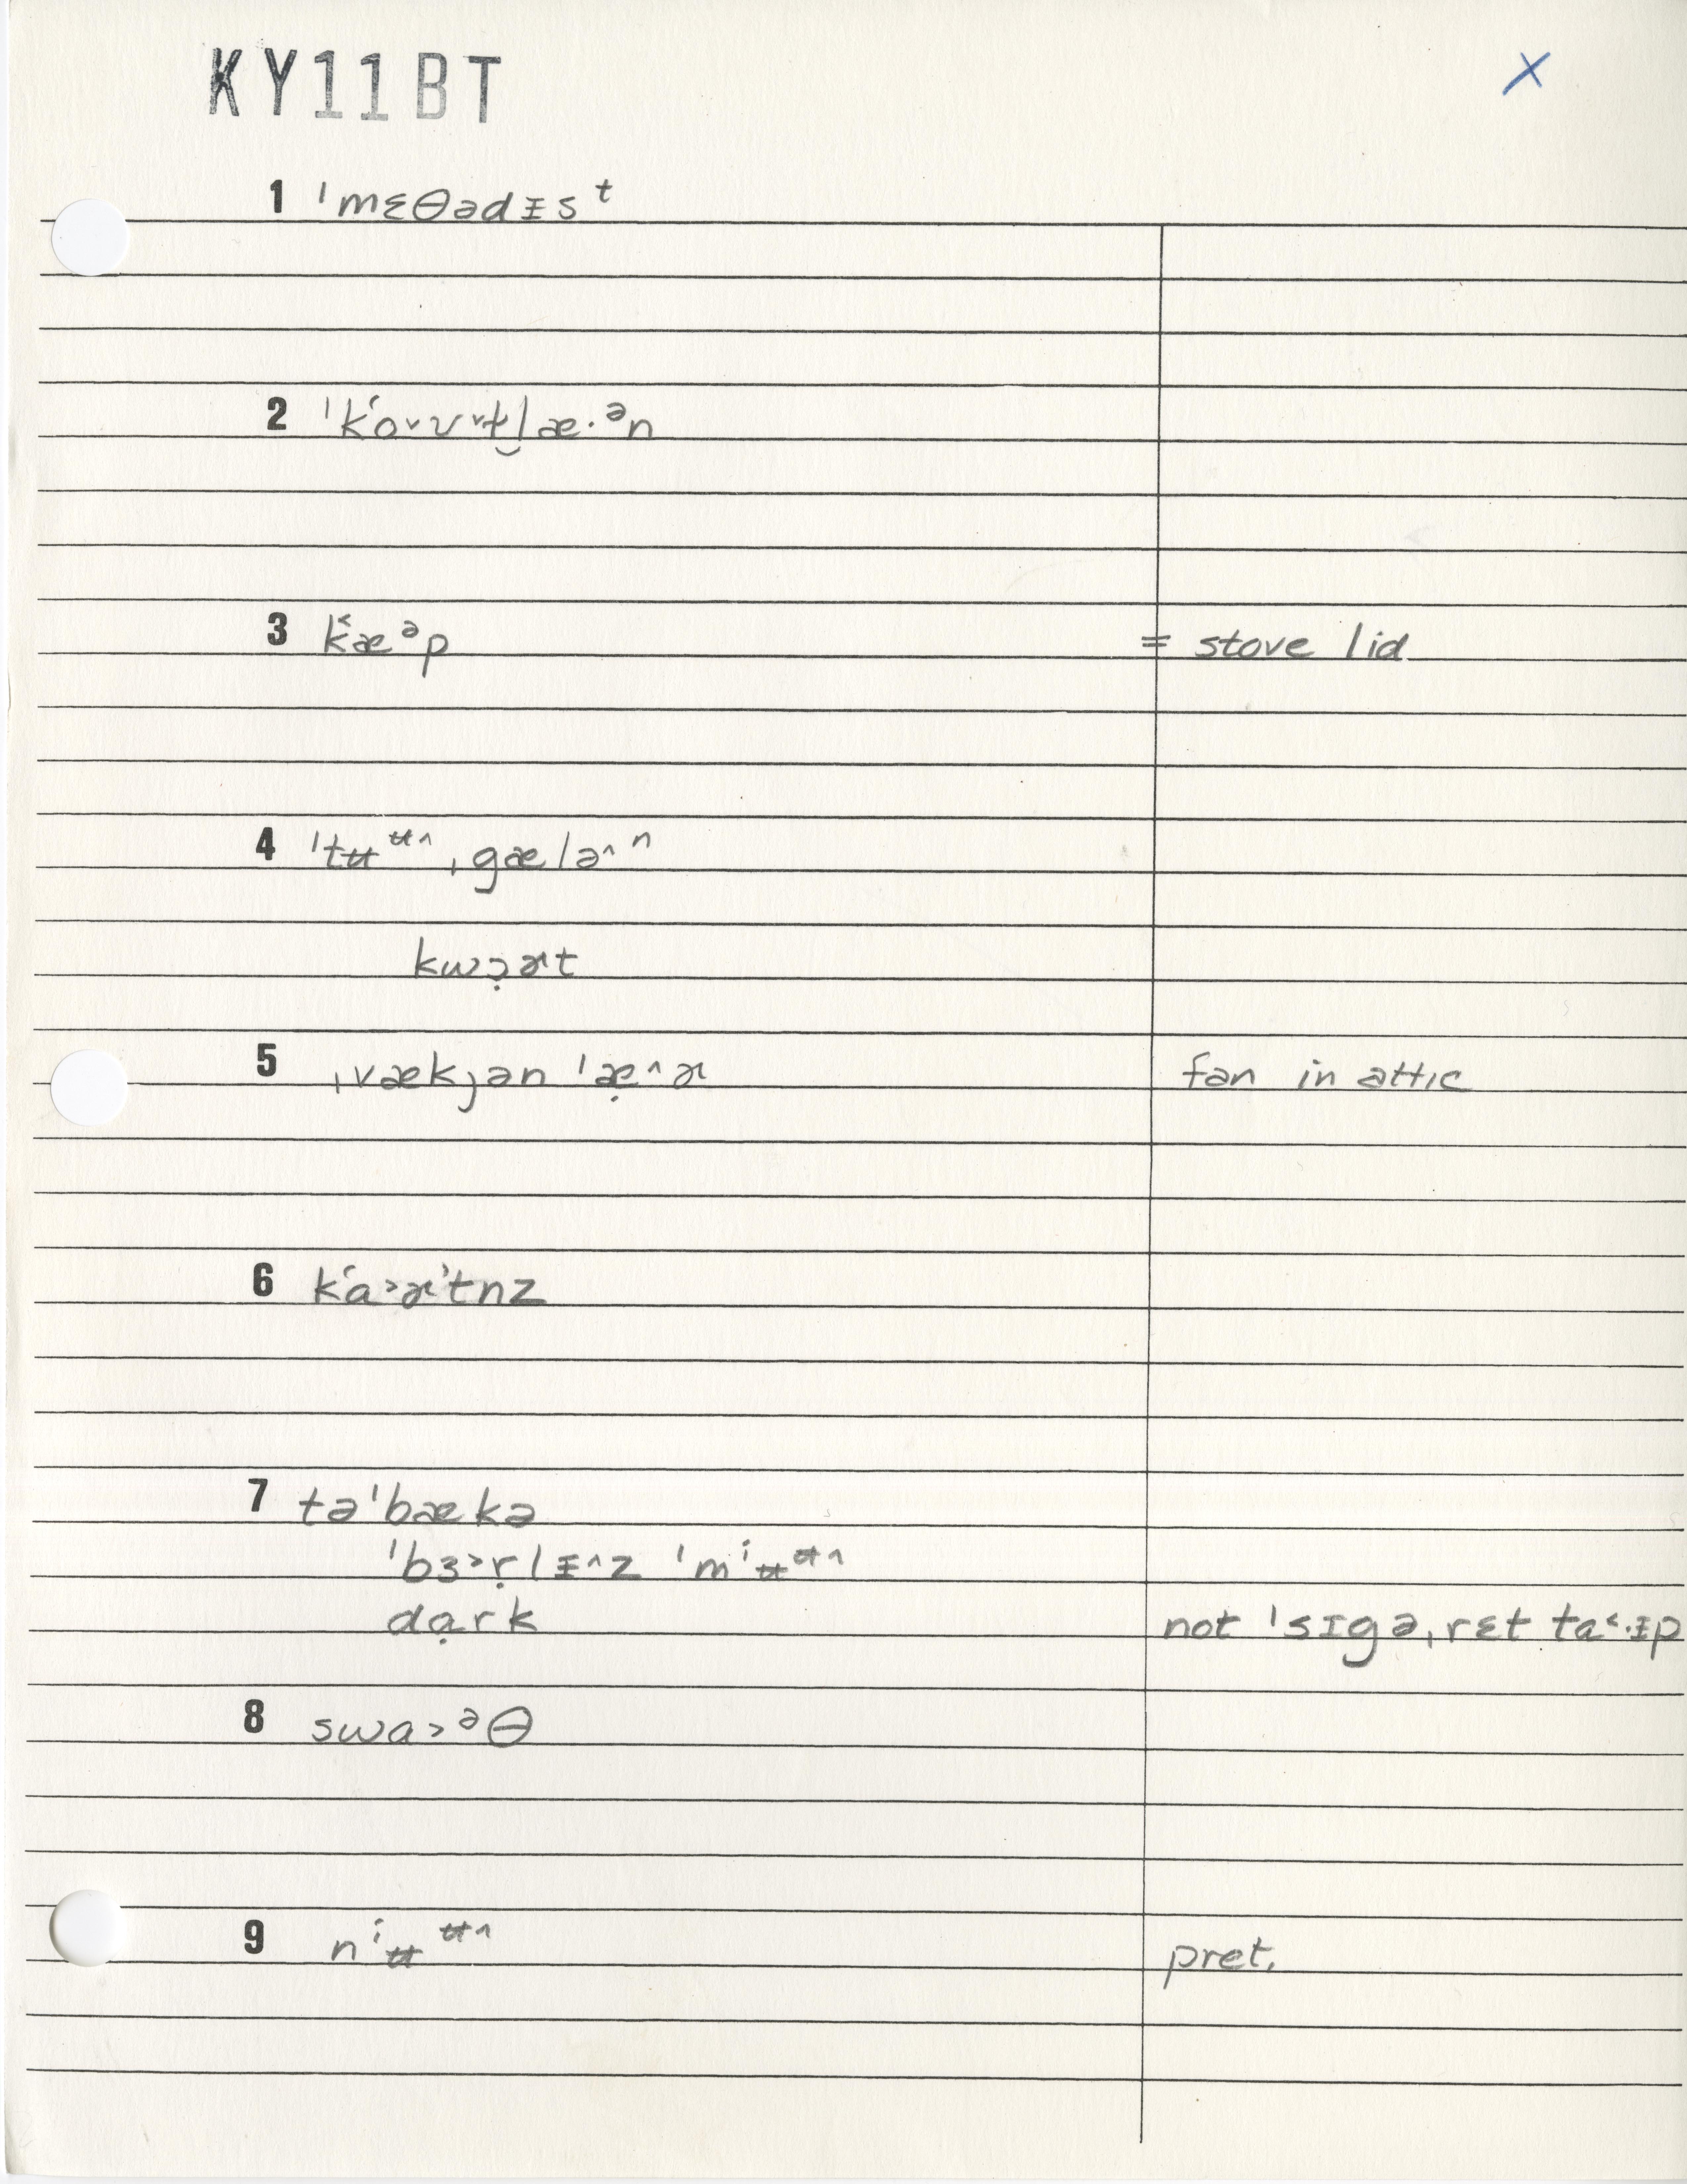 KY11BT X
1 ˈmɛθədᵻsᵗ
2 ˈkʻo˅ʊ˅t̮læ·ᵊn
3 kʻæᵊp = stove lid
4 ˈtʉᶶ˄ ˌgælə˄ⁿ
kwɔ̣ɚt
5 ˌvækjən ˈæ̣˄ɚ fan in attic
6 kʻɑ˃ɚʼtnz
7 təˈbækə
ˈbɜ˃ṛlᵻ˄z ˈmⁱʉᶶ˄
dɑ̣rk not ˈsɪgəˌrɛt ta˂·ᵻp
8 swɑ˃ᵊθ
9 nⁱʉᶶ˄ pret.